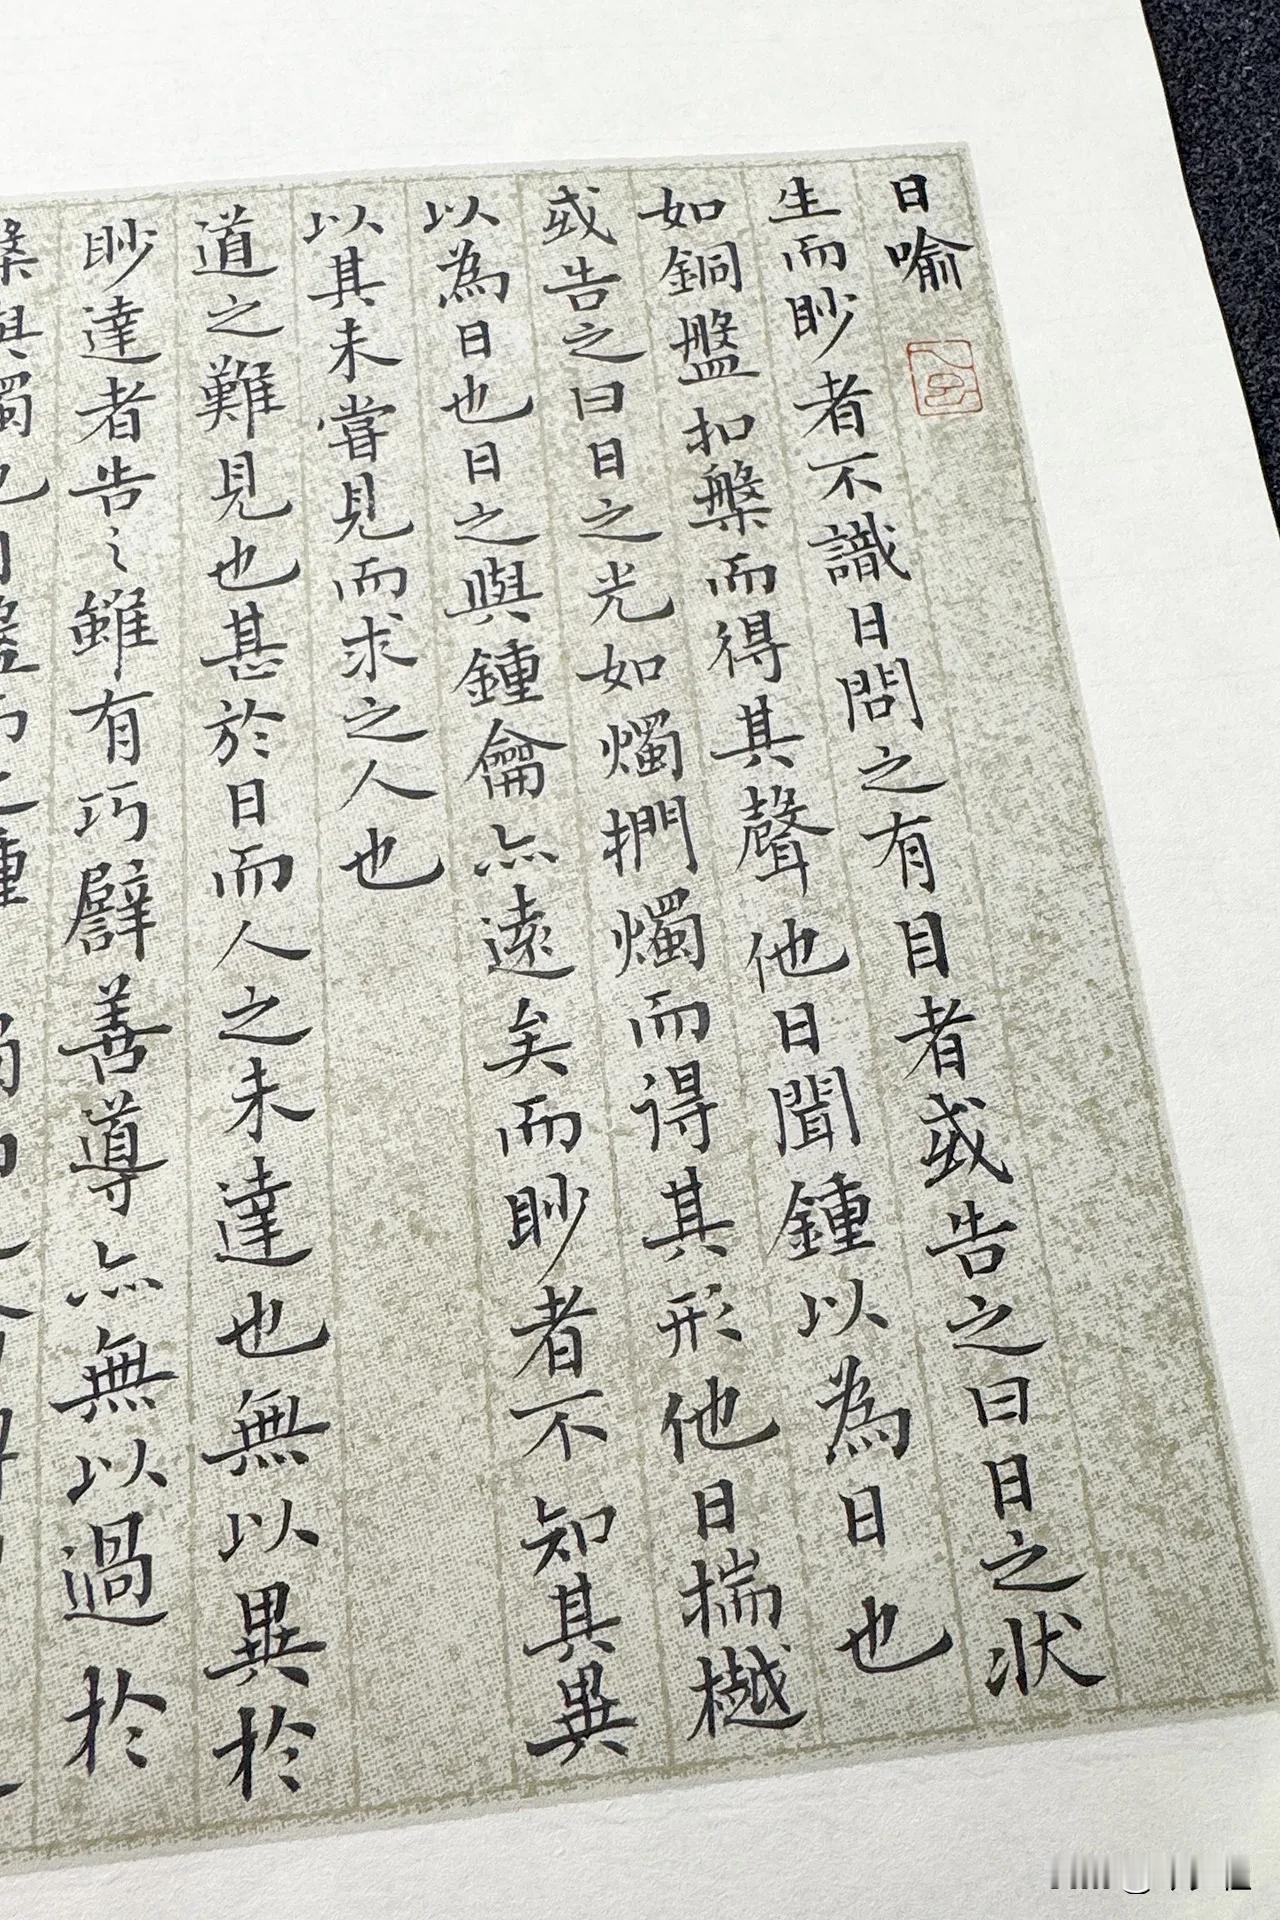 日喻
生而眇者不識日問之有目者或告之曰日之狀
如銅盤扣槃而得其聲他日聞鍾以為日也
或告之曰日之光如燭捫燭而得其形他日揣樾
以為日也日之與鍾龠亦遠矣而眇者不知其異
以其未嘗見而求之人也
道之難見也甚於日而人之未達也無以異於
眇達者告之雖有巧譬善導亦無以過於
槃與燭也